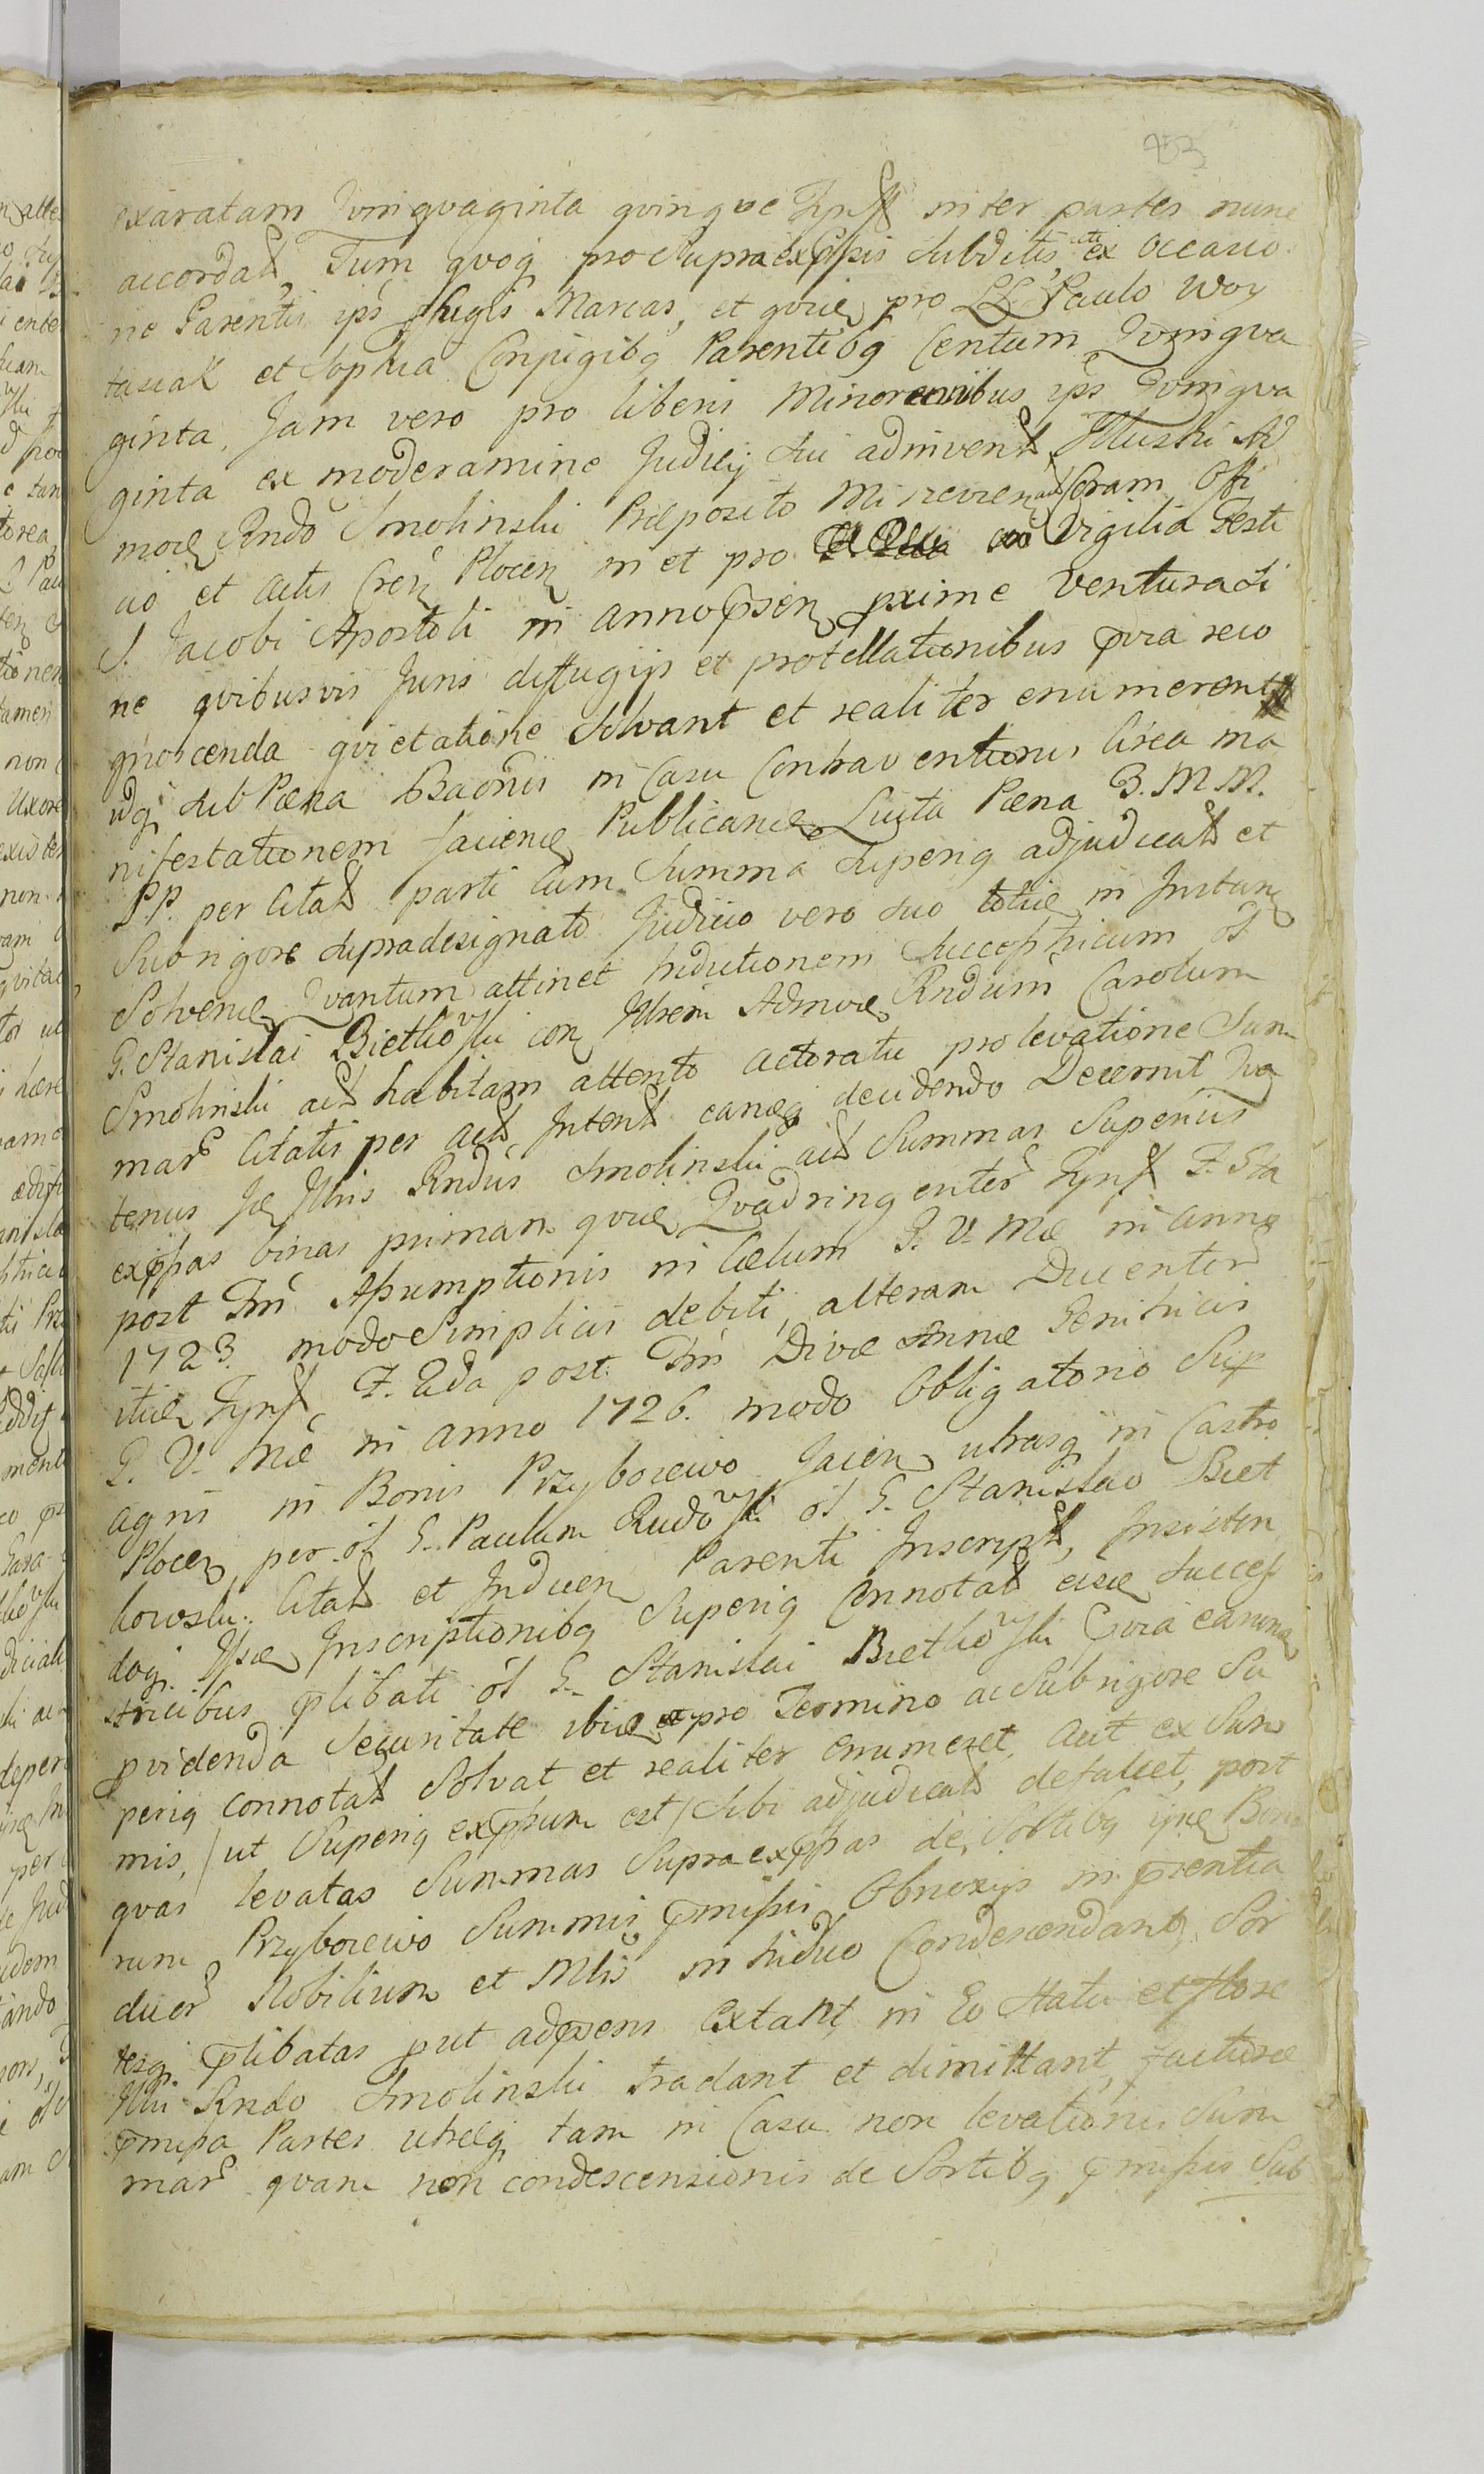 exaratam Qvinqvaginta qvinqve Tynff inter partes nunc
accordat, Tum qvoq pro supraexpssis subditis, ac ex occasio
ne Parentis ips fugis Marcas, et qvid pro LL Paulo Woy
tasiak et Sophia Conjugibq Parentibq Centum Qvinqva
ginta, Jam vero pro liberis Minorennibus ips Qvinqva
ginta ex moderamine Judicij sui adinvent Illustri Ad
mod Rndo Smolinski Præposito Coram Offi
cio et Actis Cren Plocen in et pro Vigilia Festi
S. Jacobi Apostoli in anno psen pxime ventura si
ne qvibusvis Juris diffugijs et protellationibus qvia reco
gnoscenda qvietatione Solvant et realiter enumerent
idq sub Pæna Baonis in Casu Contraventionis Circa ma
nifestationem faciend Publicand Luita Pæna 3. M M.
PP. per Citat parti Cum Summa superiq adjudicat et
Sub rigore supradesignato Judicio vero suo totid in Instan
Solvend Qvantum attinet Indutionem Successricum ol
G. Stanislai Bietkowski con Illrem Admod Rndum Carolum
Smolinski act habitam attento actoratu pro levatione Sum
mar Citatis per act Intent eamq decidendo Decernit Qva
tenus Je Illris Rndus Smolinski act Summas Superius
expssas binas primam qvid Qvadringenter Tynf F. Sta
post Fm Assumptionis in Cælum B. V. Mæ in anno
1723. modo Simplicis debiti, alteram Ducenter
itid Tynf F. 2da post. Fm Divæ Annæ Genitricis
B. V. Mæ in anno 1726. modo Obligatorio Sup
agris in Bonis Przyborowo Jacen utrasq in Castro
Plocen per ol G. Paulum Rudowski ol G. Stanislao Biet
kowski Citat et Inducen Parenti Inscript, Insisten
doq Ipsæ Inscriptionibq Superiq Connotat eisd Succes
stricibus plibati ol G. Stanislai Bietkowski qvia eamina
pvidenda Securitate ibid et pro Termino ac Sub rigore Su
periq connotat Solvat et realiter enumeret, aut ex Sum
mis, / ut Superiq expssum est / sibi adjudicat defalcet, post
qvas levatas Summas Supra expssas de, Sortibq ipse Bono
rum Przyborowo Summis pmissis Obnoxijs in psentia
duor Nobilium et Mlis in triduo Condescendant, Sor
tesq plibatas put adpsens Extant, in Eo statu et flore
Illri Rndo Smolinski tradant et dimittant, facturæ
pmissa Partes utræq tam in Casu non levationis Sum
mar qvam non condescensionis de Sortibq pmissis Sub